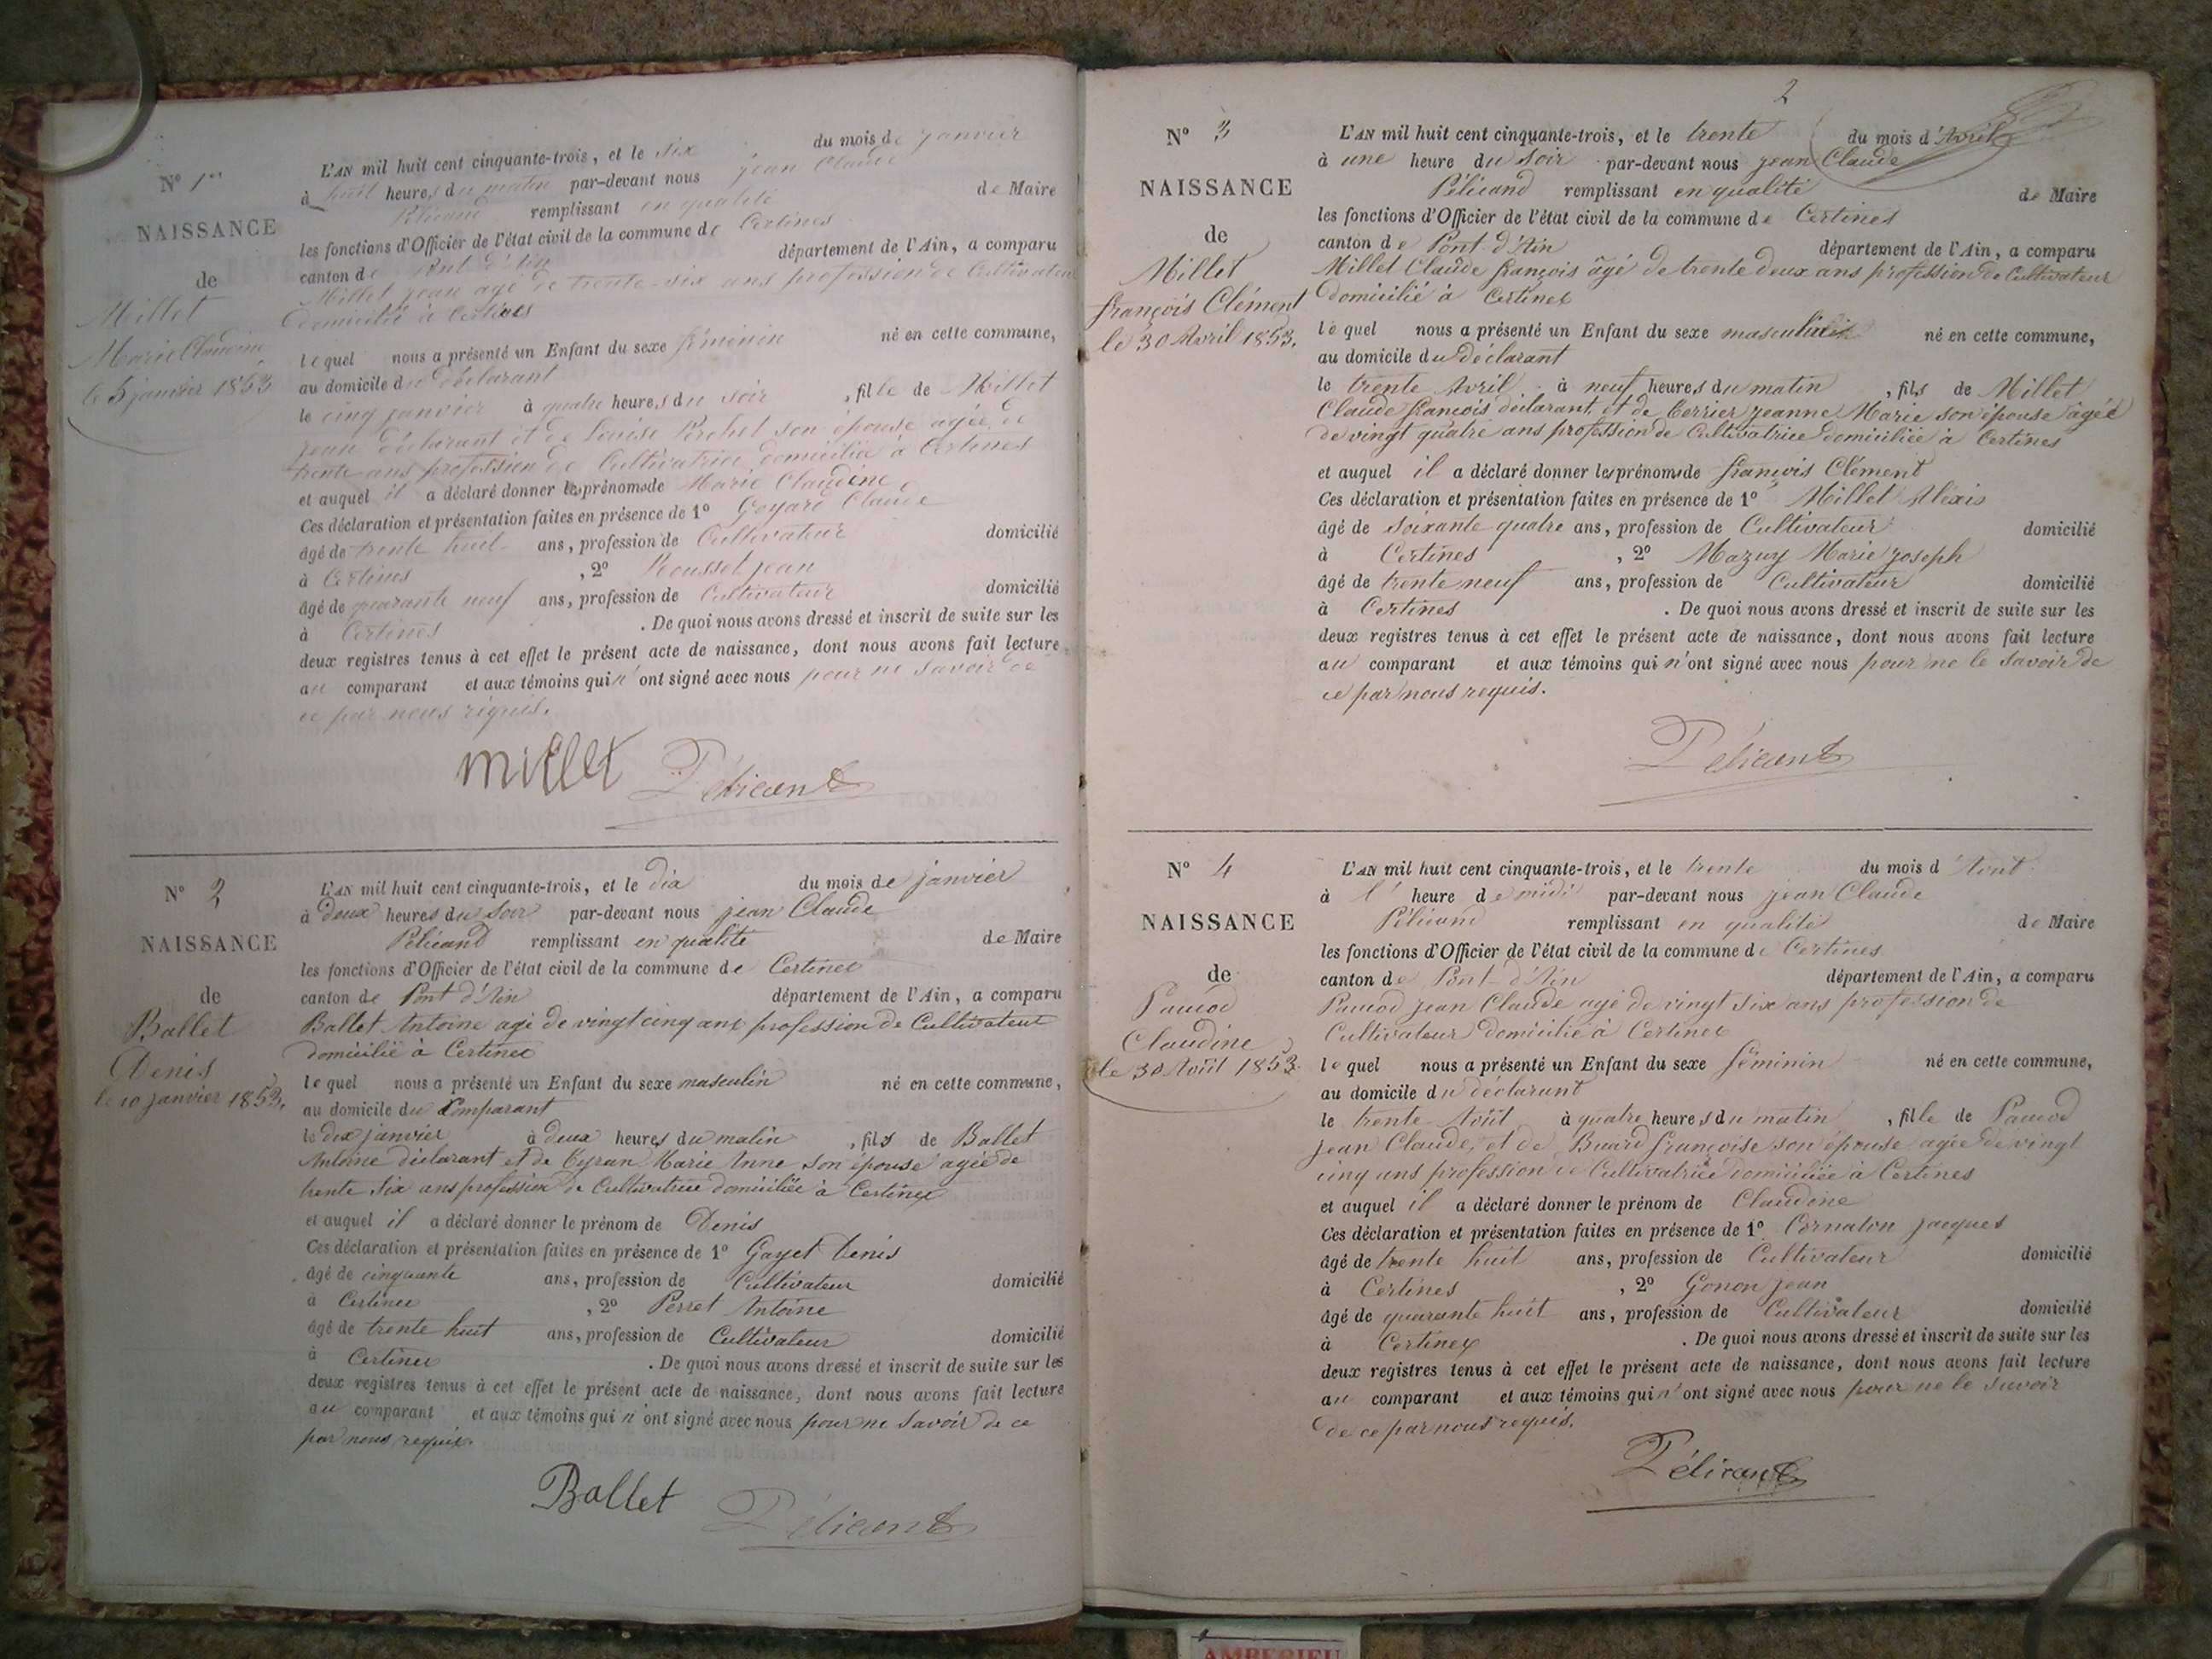 N° 1er
NAISSANCE
de
Millet
Marie Claudine
le 5 janvier 1853
L'AN mil huit cent cinquante-trois, et le six du mois de janvier
à huit heures du matin par-devant nous jean Claude
Pélicand remplissant en qualité de Maire
les fonctions d'Officier de l'état civil de la commune de Certines
canton de Pont d'Ain département de l'Ain, a comparu
Millet jean agé de trente-six ans profession de Cultivateur
domicilié à Certines
lequel nous a présenté un Enfant du sexe féminin né en cette commune,
au domicile du déclarant
le cinq janvier à quatre heures du soir , fille de Millet
jean déclarant et de Louise Perchet son épouse agée de
trente ans profession de Cultivatrice domiciliée à Certines
et auquel il a déclaré donner les prénoms de Marie Claudine
Ces déclaration et présentation faites en présence de 1° Goyard Claude
âgé de trente huit ans, profession de Cultivateur domicilié
à Certines , 2° Rousset jean
âgé de quarante neuf ans, profession de Cultivateur domicilié
à Certines . De quoi nous avons dressé et inscrit de suite sur les
deux registres tenus à cet effet le présent acte de naissance, dont nous avons fait lecture
au comparant et aux témoins qui n'ont signé avec nous pour ne savoir de
ce par nous requis.
millet Pélicand
N° 2
NAISSANCE
de
Ballet
Denis
le 10 janvier 1853.
L'AN mil huit cent cinquante-trois, et le dix du mois de janvier
à deux heures du soir par-devant nous jean Claude
Pélicand remplissant en qualité de Maire
les fonctions d'Officier de l'état civil de la commune de Certines
canton de Pont d'Ain département de l'Ain, a comparu
Ballet Antoine agé de vingt cinq ans profession de Cultivateur
domicilié à Certines
lequel nous a présenté un Enfant du sexe masculin né en cette commune,
au domicile du Comparant
le dix janvier à deux heures du matin , fils de Ballet
Antoine déclarant et de Marie Anne son épouse agée de
trente six ans profession de Cultivatrice domiciliée à Certines
et auquel il a déclaré donner le prénom de Denis
Ces déclaration et présentation faites en présence de 1° Gayet Denis
âgé de cinquante ans, profession de Cultivateur domicilié
à Certines , 2° Perret Antoine
âgé de trente huit ans, profession de Cultivateur domicilié
à Certines . De quoi nous avons dressé et inscrit de suite sur les
deux registres tenus à cet effet le présent acte de naissance, dont nous avons fait lecture
au comparant et aux témoins qui n'ont signé avec nous pour ne savoir de ce
par nous requis.
Ballet Pélicand
2
N° 3
NAISSANCE
de
Millet
françois Clément
le 30 Avril 1853.
L'AN mil huit cent cinquante-trois, et le trente du mois d'Avril
à une heure du soir par-devant nous jean Claude
Pélicand remplissant en qualité de Maire
les fonctions d'Officier de l'état civil de la commune de Certines
canton de Pont-d'Ain département de l'Ain, a comparu
Millet Claude françois âgé de trente deux ans profession de Cultivateur
domicilié à Certines
lequel nous a présenté un Enfant du sexe masculin né en cette commune,
au domicile du déclarant
le trente Avril à neuf heures du matin , fils de Millet
Claude francois déclarant, et de Berrier jeanne Marie son épouse agée
de vingt quatre ans profession de Cultivatrice domiciliée à Certines
et auquel il a déclaré donner les prénoms de françois Clément
Ces déclaration et présentation faites en présence de 1° Millet Alexis
âgé de soixante quatre ans, profession de Cultivateur domicilié
à Certines , 2° Mazuy Marie joseph
âgé de trente neuf ans, profession de Cultivateur domicilié
à Certines . De quoi nous avons dressé et inscrit de suite sur les
deux registres tenus à cet effet le présent acte de naissance, dont nous avons fait lecture
au comparant et aux témoins qui n'ont signé avec nous pour ne le savoir de
ce par nous requis.
Pélicand
N° 4
NAISSANCE
de
Pauod
Claudine
le 30 Août 1853.
L'AN mil huit cent cinquante-trois, et le trente du mois d'Aout
à l' heure de midi par-devant nous jean Claude
Pélicand remplissant en qualité de Maire
les fonctions d'Officier de l'état civil de la commune de Certines
canton de Pont-d'Ain département de l'Ain, a comparu
Pauod jean Claude agé de vingt six ans profession de
Cultivateur domicilié à Certines
lequel nous a présenté un Enfant du sexe féminin né en cette commune,
au domicile du déclarant
le trente Août à quatre heures du matin , fille de Pauod
jean Claude, et de Buard françoise son épouse agée de vingt
cinq ans profession de Cultivatrice domiciliée à Certines
et auquel il a déclaré donner le prénom de Claudine
Ces déclaration et présentation faites en présence de 1° Cornaton jacques
âgé de trente huit ans, profession de Cultivateur domicilié
à Certines , 2° Gonon jean
âgé de quarante huit ans, profession de Cultivateur domicilié
à Certines . De quoi nous avons dressé et inscrit de suite sur les
deux registres tenus à cet effet le présent acte de naissance, dont nous avons fait lecture
au comparant et aux témoins qui n'ont signé avec nous pour ne le savoir
de ce par nous requis.
Pélicand